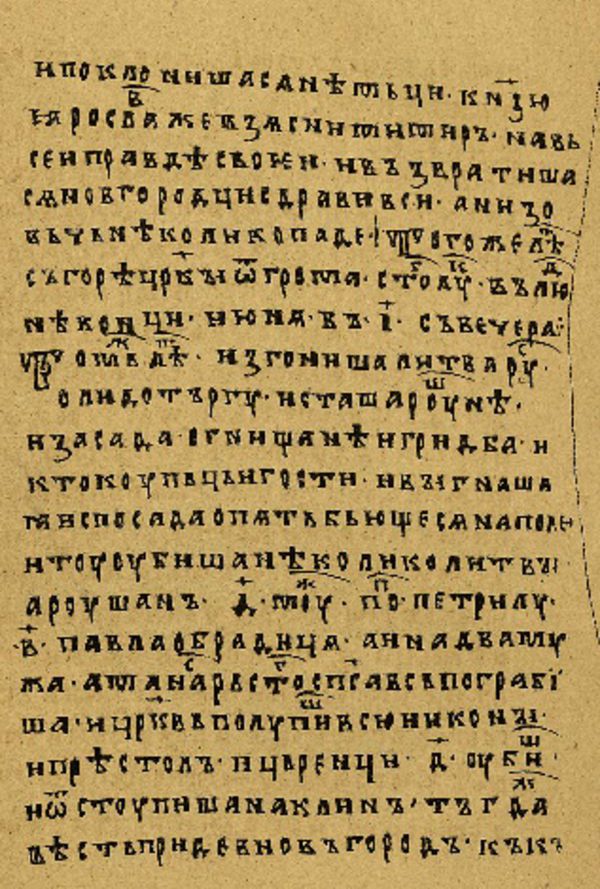 и поклонишасѧ нѣмьци · кнзю
ꙗрославъ же взѧ с ними миръ · на вь
сеи правдѣ своеи · и възвратиша
сѧ новгородци сдрави вси · а низо
вьчь нѣколико паде · того же лѣт
съгорѣ црквꙑ ѿ грома · стго лукꙑ · въ лю
нѣ конци · июнѧ · въ · і҃ · съ вечера ·
томь лѣ · изгониша литва рус
оли до търгу · и сташа роушѣ ·
и засада · огнищанѣ и гридба · и
кто коупьць и гости · и вꙑгнаша
ꙗ ис посада опѧть бьющесѧ на поли
и тоу оубиша нѣколико литвꙑ
а роушанъ · д҃ · моу · поп петрилу ·
в҃ · павла обрадицѧ · а ина два му
жа · а манарь стго спса всь пограбі
ша · и црквь полупи всю иконꙑ
и прѣстолъ · и церенци · д҃ · оуби
и ѿстоупиша на клинъ · тъгда
вѣсть приде в новъгородъ · къ к